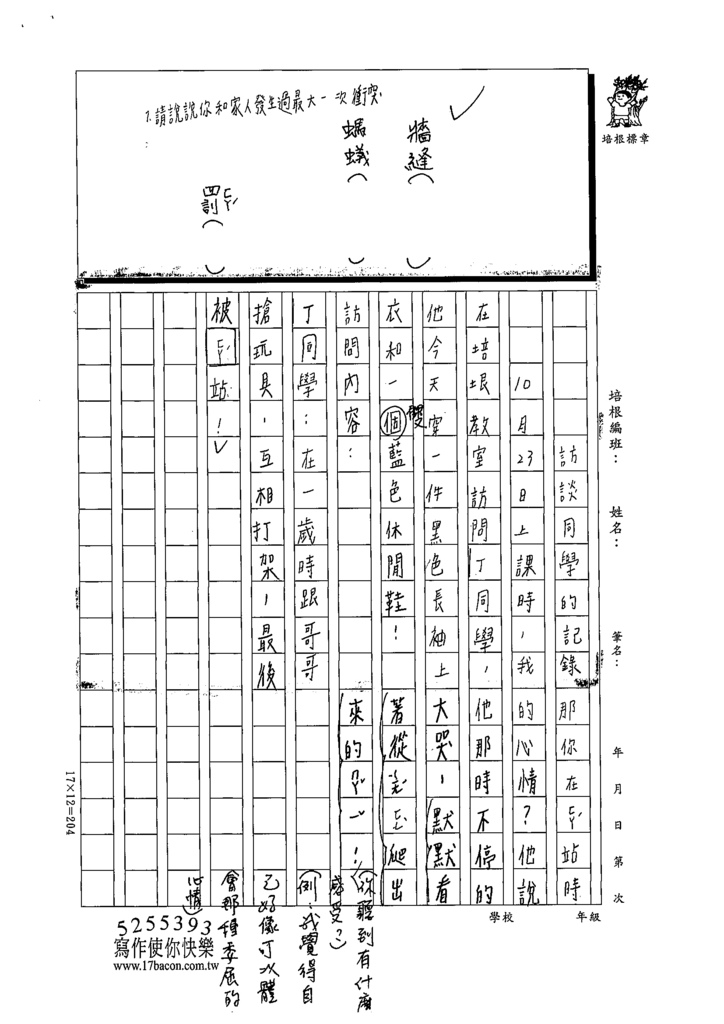 1.請說說你和家人發生過最大一次衝突
:
牆縫（　）
螞蟻（　）
罰ㄈㄚˊ（　）
培根標章
培根編班：
姓名：
筆名：
年 月 日 第 次
學校
年級
訪談同學的記錄
10月23日上課時，我
在培垠教室訪問丁同學，
他今天穿一件黑色長袖上
衣和一個雙藍色休閒鞋！
訪問內容：
丁同學：在一歲時跟哥哥
搶玩具，互相打架，最後
被ㄈㄚˊ站！
那你在ㄈㄚˊ站時
的心情？他說
他那時不停的
大哭，默默看
著從
爬出
來的
！
（你聽到有什麼
感受？）
（例：我覺得自
己好像可以體
會那種委屈的
心情）
17×12=204
5255393
寫作使你快樂
www.17bacon.com.tw